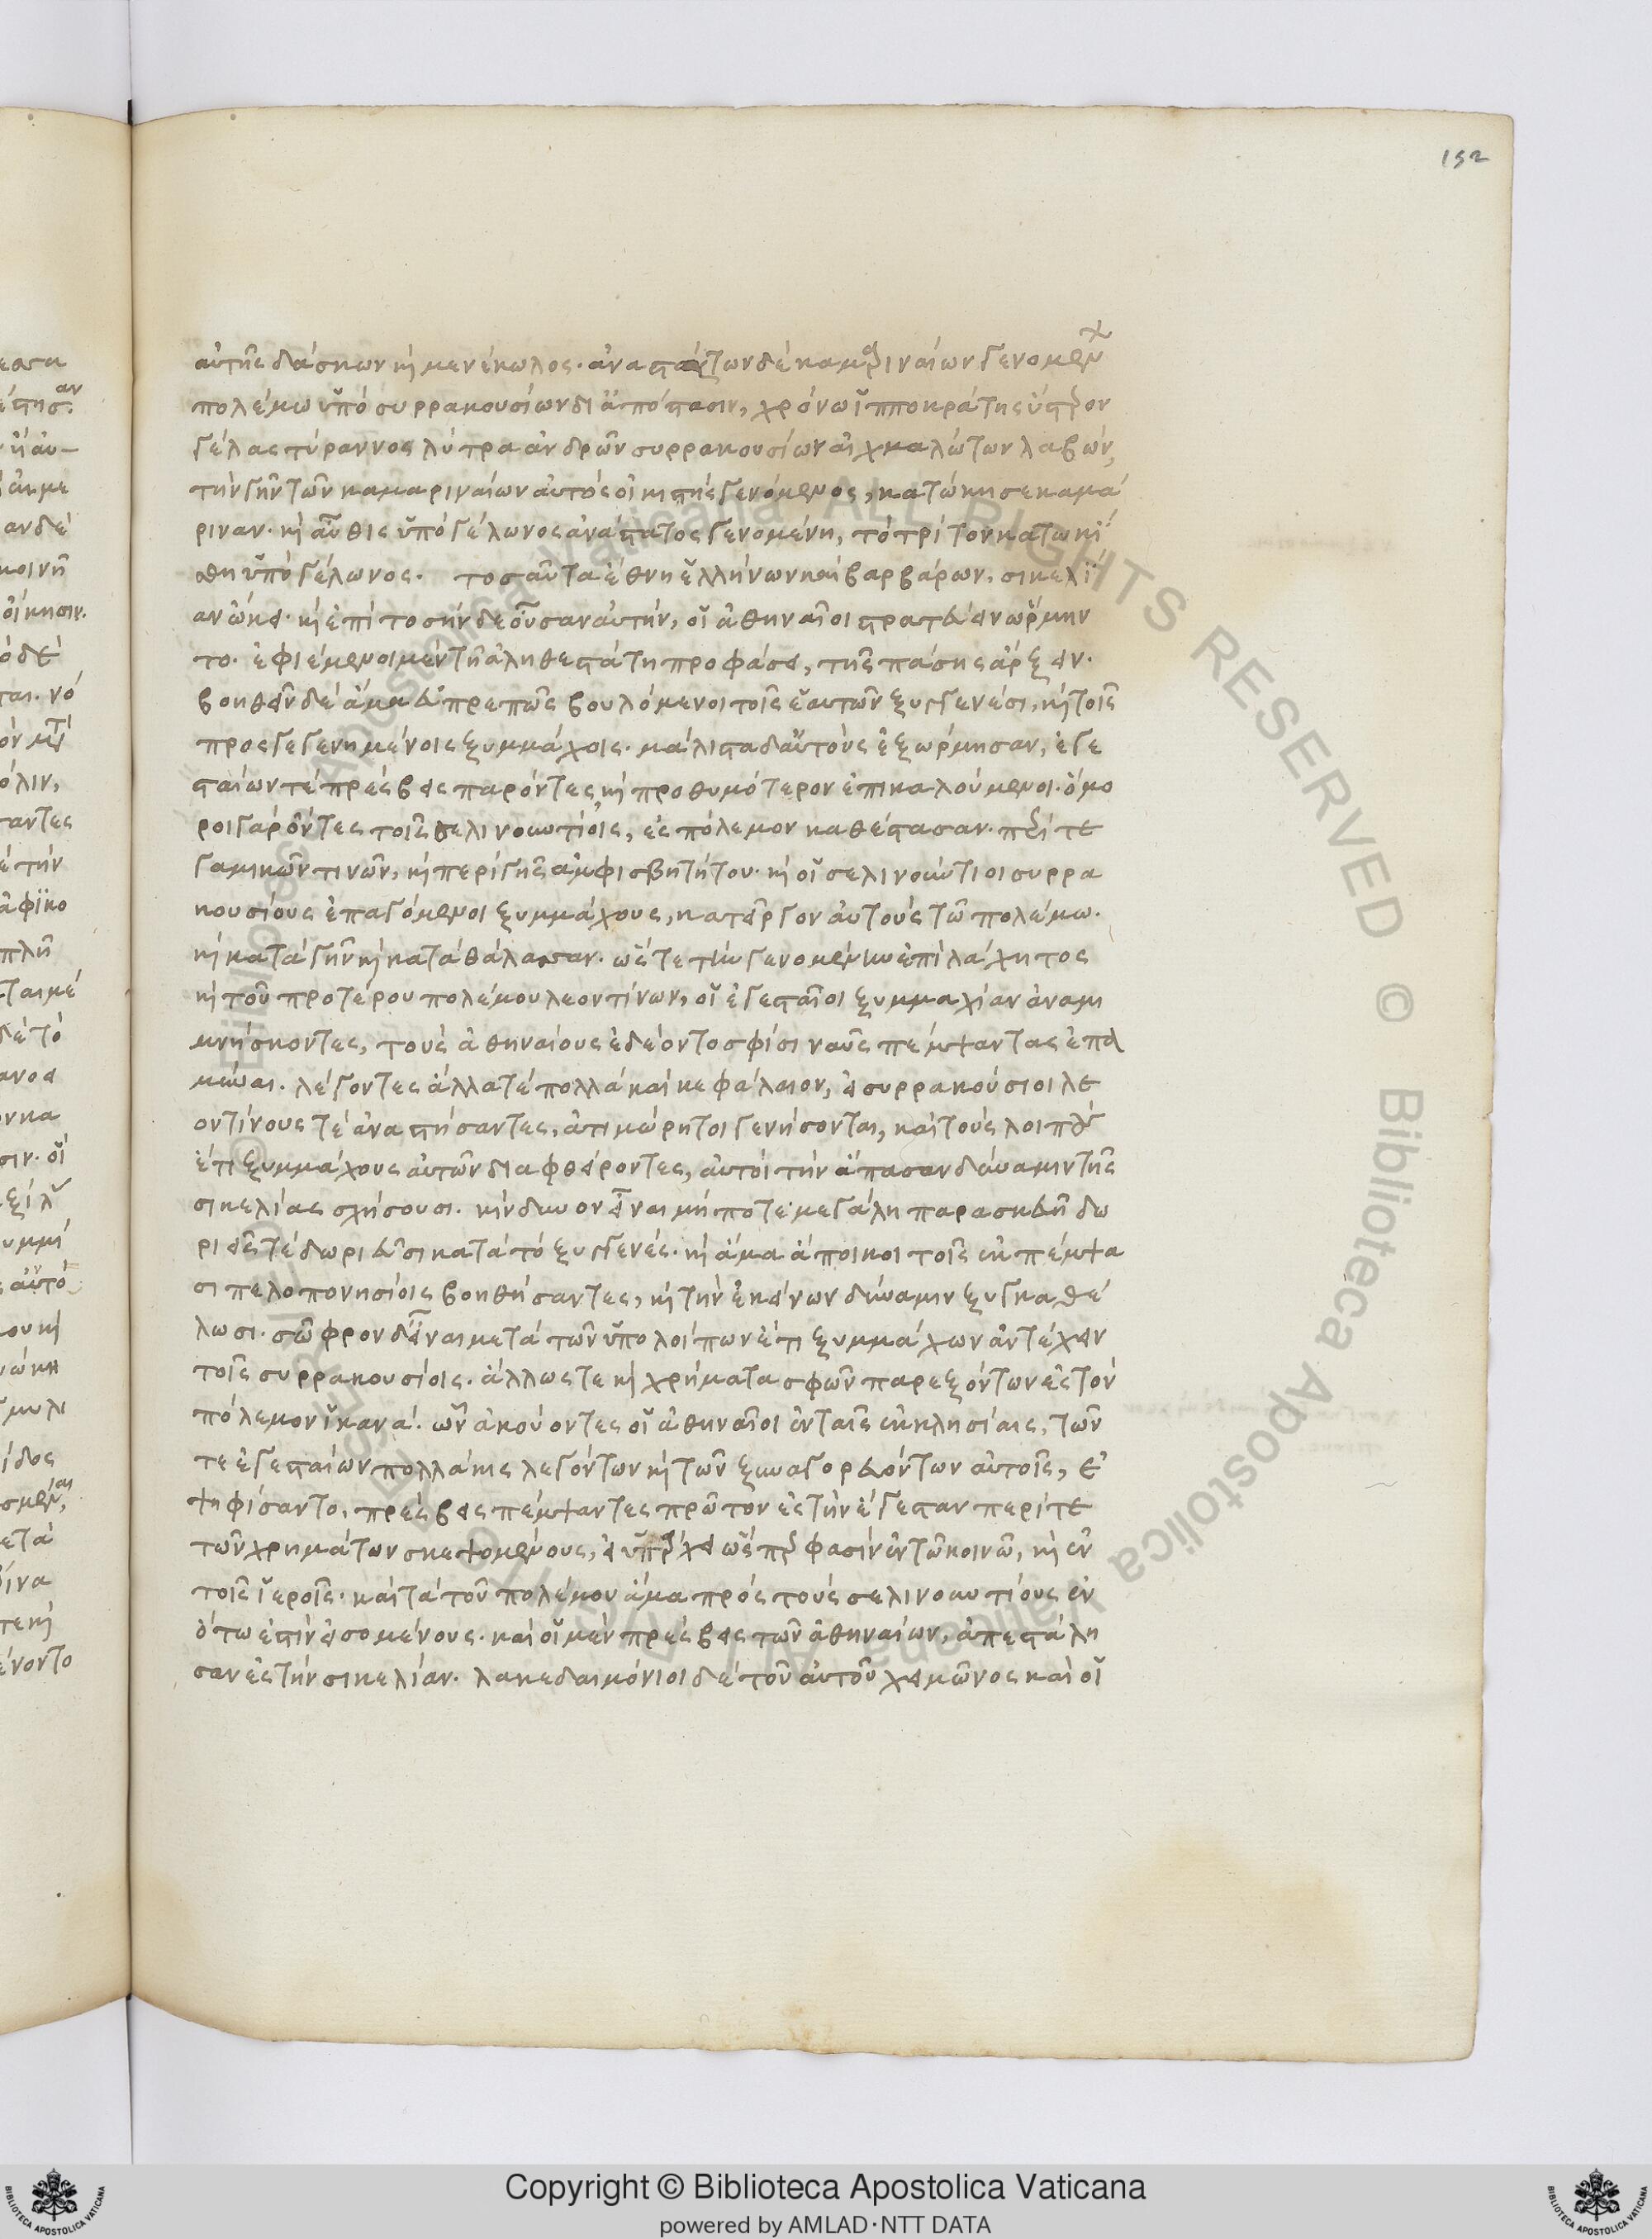 152
αὐτῆς δάσκων κ̀ μενέκωλος· ἀναστάτων δὲ καμαριναίων γενομένων
πολέμω ὑπὸ συρρακουσίων δι ἀπόστασιν, χρόνω ἱπποκράτης ὕστερον
γέλας τύραννος λύτρα ἀνδρῶν συρρακουσίων αἰχμαλώτων λαβών,
τὴν γῆν τῶν καμαριναίων αὐτὸς οἰκιστὴς γενόμενος, κατώκησε καμά
ριναν· κ̀ αὖθις ὑπὸ γέλωνος ἀνάστατος γενομένη, τὸ τρίτον κατωκί
σθη ὑπὸ γέλωνος. τοσαῦτα ἔθνη ἑλλήνων καὶ βαρβάρων, σικελί
αν ὤκει· κ̀ ἐπὶ τοσήνδε οὖσαν αὐτὴν, οἱ ἀθηναῖοι στρατεύειν ὥρμην
το· ἐφιέμενοι μὲν τῆ ἀληθεστάτη προφάσει, τῆς πάσης ἄρξειν·
βοηθεῖν δὲ ἅμα εὐπρεπῶς βουλόμενοι τοῖς ἑαυτῶν ξυγγενέσι, κ̀ τοῖς
προσγεγενημένοις ξυμμάχοις· μάλιστα δ αὐτοὺς ἐξώρμησαν, ἐγε
σταίων τὲ πρέσβεις παρόντες, κ̀ προθυμότερον ἐπικαλούμενοι. ὅμο
ροι γὰρ ὄντες τοῖς σελινουντίοις, ἐς πόλεμον καθέστασαν· περί τε
γαμικῶν τινῶν, κ̀ περὶ γῆς ἀμφισβητήτου· κ̀ οἱ σελινούντιοι συρρα
κουσίους ἐπαγόμενοι ξυμμάχους, κατεῖργον αὐτοὺς τῶ πολέμω·
κ̀ κατὰ γῆν κ̀ κατὰ θάλασσαν· ὥστε τὴν γενομένην ἐπὶ λάχητος
κ̀ τοῦ προτέρου πολέμου λεοντίνων, οἱ ἐγεσταῖοι ξυμμαχίαν ἀναμι
μνήσκοντες, τοὺς ἀθηναίους ἐδέοντο σφίσι ναῦς πέμψαντας ἐπα
μῦναι. λέγοντες ἄλλα τὲ πολλὰ καὶ κεφάλαιον, εἰ συρρακούσιοι λε
οντίνους τὲ ἀναστήσαντες, ἀτιμώρητοι γενήσονται, καὶ τοὺς λοιποὺς
ἔτι ξυμμάχους αὐτῶν διαφθείροντες, αὐτοὶ τὴν ἅπασαν δύναμιν τῆς
σικελίας σχήσουσι. κίνδυνον εἶναι μήποτε μεγάλη παρασκευῆ δω
ριεῖς τὲ δωριεῦσι κατὰ τὸ ξυγγενές· κ̀ ἅμα ἄποικοι τοῖς ἐκπέμψα
σι πελοπονησίοις βοηθήσαντες, κ̀ τὴν ἐκείνων δύναμιν ξυγκαθέ
λωσι. σῶφρον δ εἶναι μετὰ τῶν ὑπολοίπων ἔτι ξυμμάχων ἀντέχειν
τοῖς συρρακουσίοις· ἄλλωστε κ̀ χρήματα σφῶν παρεξόντων ἐς τὸν
πόλεμον ἱκανά. ὧν ἀκούοντες οἱ ἀθηναῖοι ἐν ταῖς ἐκκλησίαις, τῶν
τε ἐγεσταίων πολλάκις λεγόντων κ̀ τῶν ξυναγορευόντων αὐτοῖς, ἐ
ψηφίσαντο, πρέσβεις πέμψαντες πρῶτον ἐς τὴν ἔγεσταν περί τε
τῶν χρημάτων σκεψομένους, εἰ ὑπάρχει ὥσπερ φασὶν ἐν τῶ κοινῶ, κ̀ ἐν
τοῖς ἱεροῖς· καὶ τὰ τοῦ πολέμου ἅμα πρὸς τοὺς σελινουντίους ἐν
ὅτω ἐστὶν εἰσομένους· καὶ οἱ μὲν πρέσβεις τῶν ἀθηναίων, ἀπεστάλη
σαν ἐς τὴν σικελίαν. λακεδαιμόνιοι δὲ τοῦ αὐτοῦ χειμῶνος καὶ οἱ
Copyright © Biblioteca Apostolica Vaticana
powered by AMLAD·NTT DATA